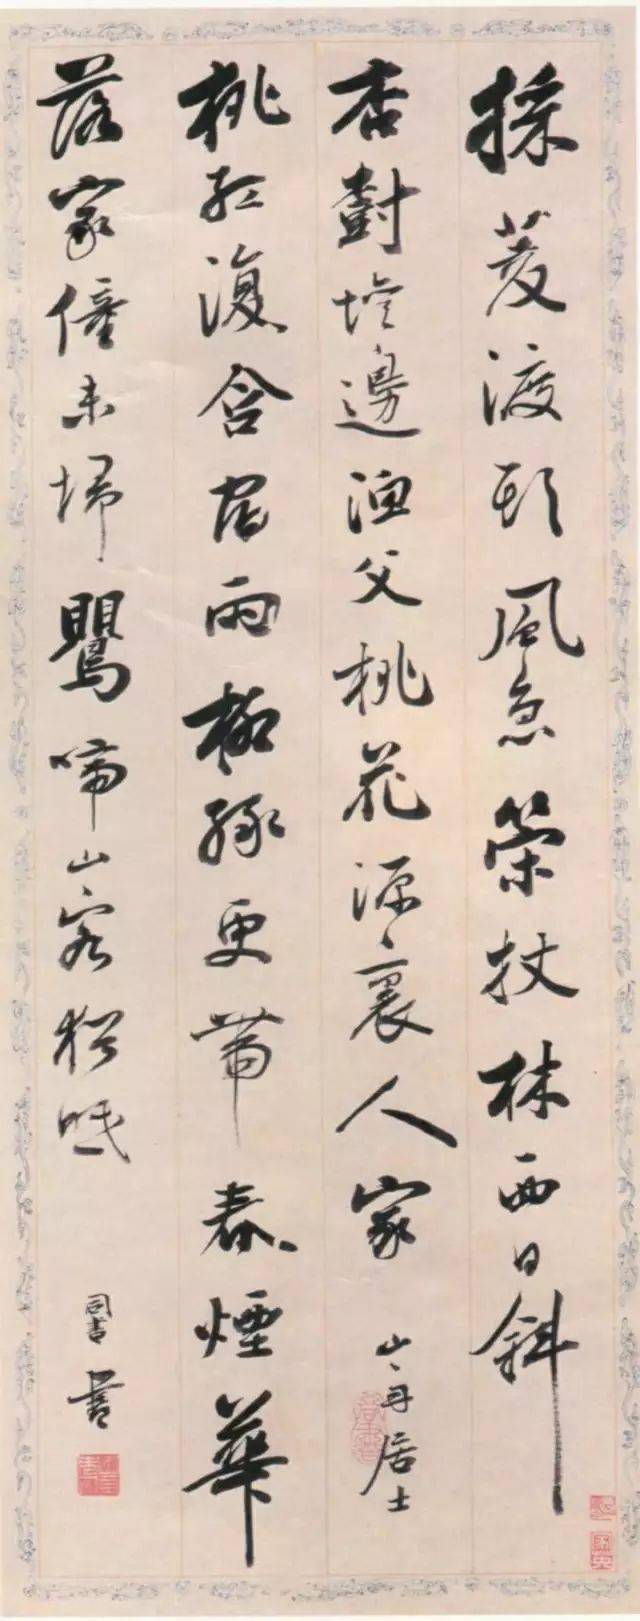 採菱渡頭風急策杖林西日斜
杏樹壇邊漁父桃花源裏人家
山舟居士
桃紅復含宿雨柳綠更帶春煙華
落家僮未埽鸎啼山客猶眠
同書書